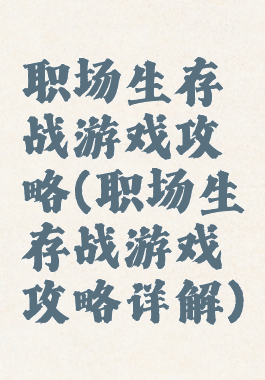 职场生存
战游戏攻
略(职场生
存战游戏
攻略详解)